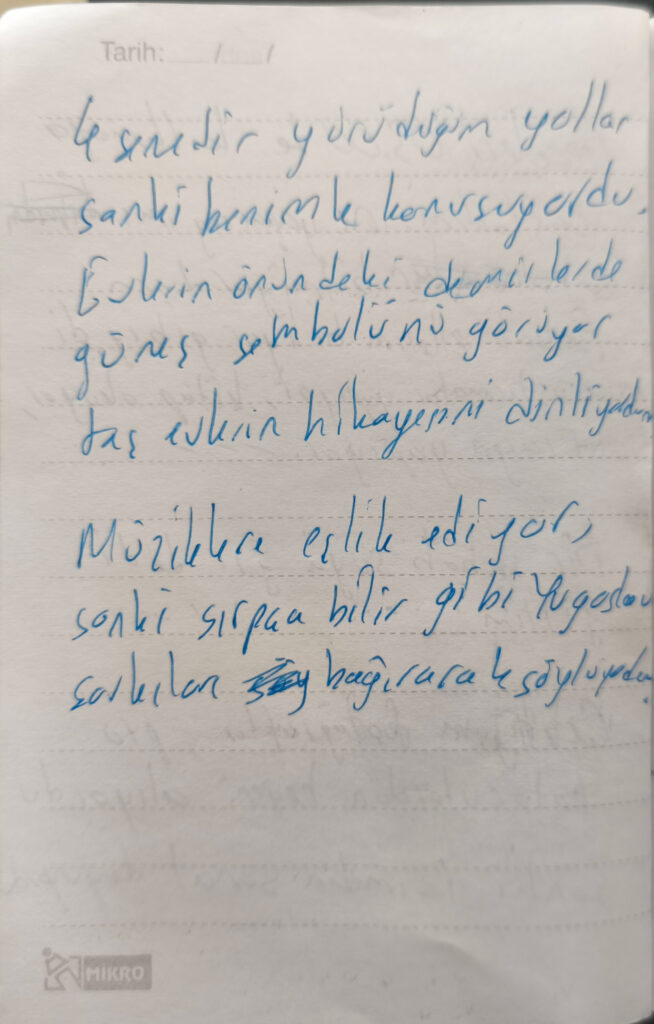 Tarih: / /
4 senedir yürüdüğüm yollar
sanki benimle konuşuyordu.
Evlerin önündeki demirlerde
güneş sembolünü görüyor
taş evlerin hikayesini dinliyordum
Müziklere eşlik ediyor,
sanki sırpça bilir gibi Yugoslav
şarkıları bağırarak söylüyordum.
MIKRO